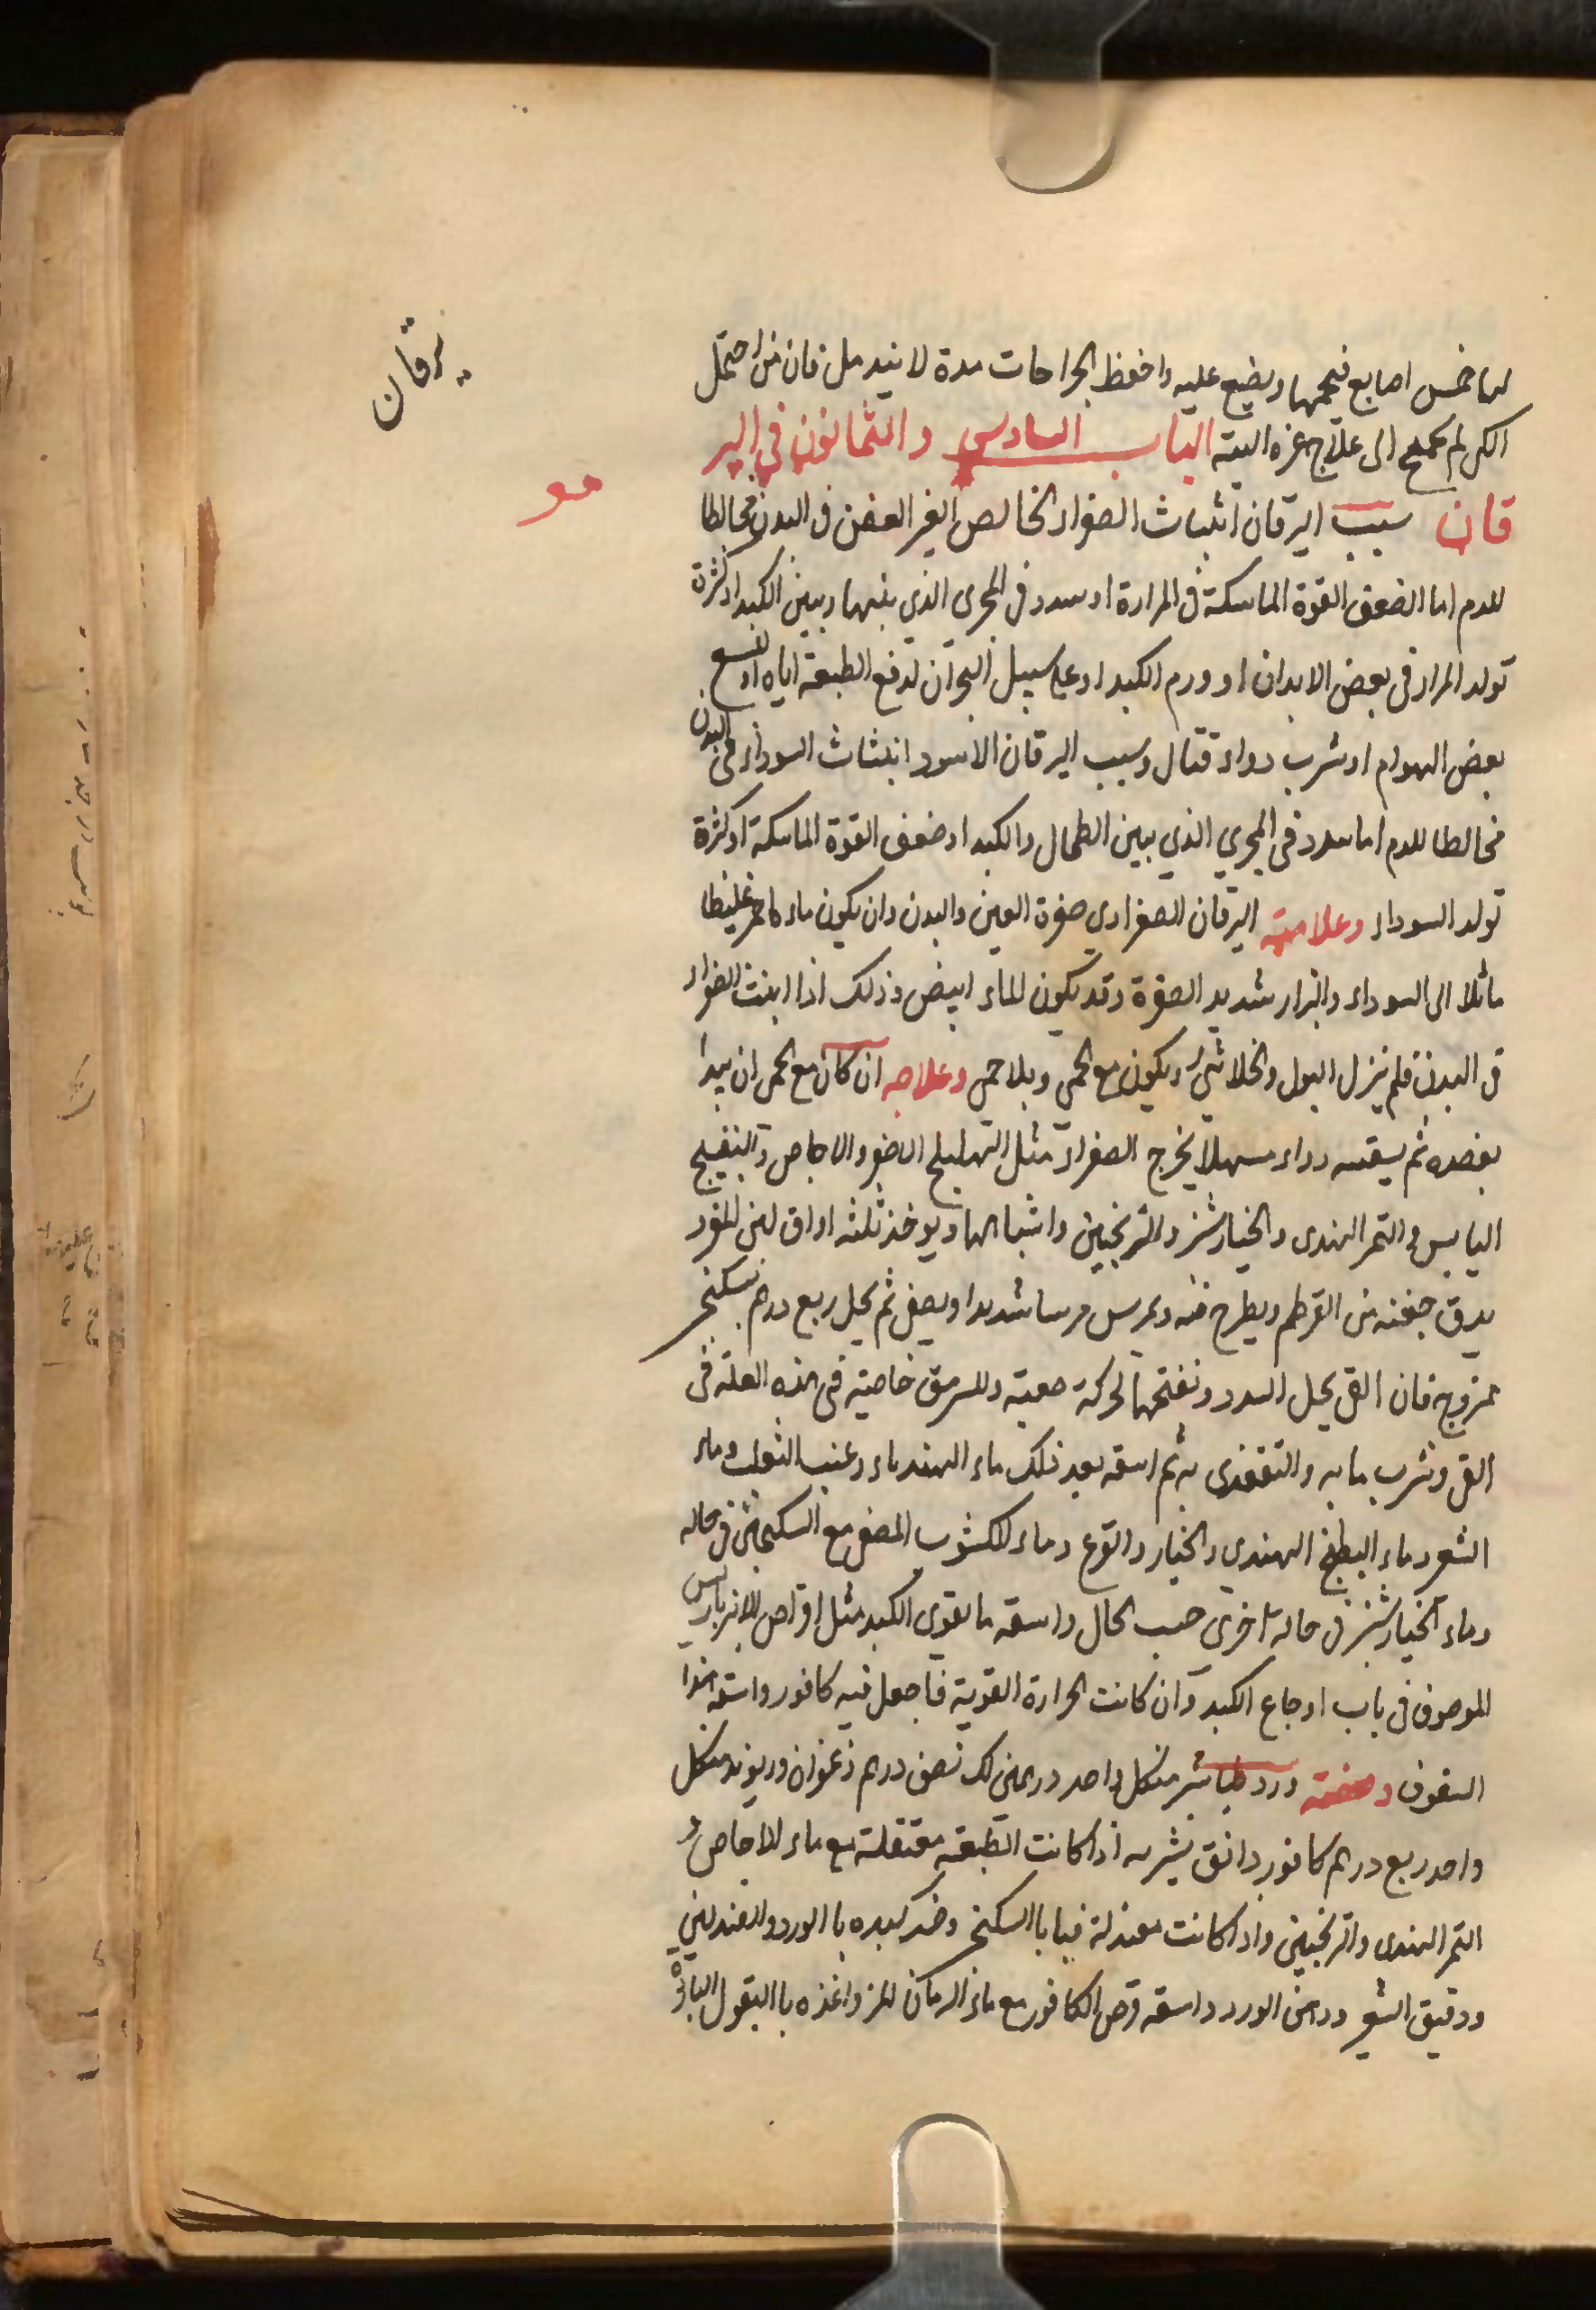 يرقان
لها خمس اصابع فيحميها ويضع عليه واحفظ الجراحات مدة لا يندمل فان من احتمل
الكي لم يحتج الى علاج غيره البتة الباب السادس والثمانون في الير
فو
قان سبب اليرقان انبثاث الصفراء الخالص الغير العفن في البدن مخالطا
للدم اما لضعف القوة الماسكة في المرارة او سدد في المجرى الذي بينها وبين الكبد او كثرة
تولد المرار في بعض الابدان او ورم الكبد او على سبيل البحران لدفع الطبيعة اياه او لسع
بعض الهوام او شرب دواء قتال وسبب اليرقان الاسود انبثاث السوداء في البدن
مخالطا للدم اما سدد في المجري الذي بين الطحال والكبد او ضعف القوة الماسكة او كثرة
تولد السوداء وعلامته اليرقان الصفراوي صفرة العين والبدن وان يكون ماء احمر غليظا
مائلا الى السوداء والبراز شديد الصفرة وقد يكون الماء ابيض وذلك اذا انبثت الصفراء
في البدن فلم ينزل البول والخلا شئ ويكون مع الحمى وبلا حمى وعلاجه ان كان مع الحمى ان يبدا
بفصده ثم يسقيه دواء مسهلا يخرج الصفراء مثل الهليلج الاصفر والاجاص والبنفسج
اليابس والتمر الهندى والخيارشنبر والترنجبين واشباهها ويوخذ ثلثه اواق لبن
يدق حفنه من القرطم ويطرح فيه ويمرس مرسا شديدا ويصفى ثم يحل ربع درهم سكنج
ممزوج فان القى يحل السدد ونفتحها لحركة صعبة وللسرمق خاصية في هذه العلة في
القى وشرب مائه والتغذى به ثم اسقه بعد ذلك ماء الهندباء وعنب الثعلب وماء
الشعير وماء البطيخ الهندي والخيار والقرع وماء الكشوث المصفى مع السكنجبين في حاله
وماء الخيارشنبر في حاله اخرى حسب الحال واسقه ما يقوى الكبد مثل اقراص الانبرباريس
الموصوف في باب اوجاع الكبد وان كانت الحرارة القوية فاجعل فيه كافور واسقه هذا
السفوف وصفته ورد طباشير من كل واحد درهمين لك نصف درهم زعفران وريوند من كل
واحد ربع درهم كافور دانق يشربه اذا كانت الطبيعة معتقلة مع ماء الاجاص و
التمر الهندى والترنجبين واذا كانت معتدلة فبالسكنج وضمد كبده باالورد والصندلين
ودقيق الشعير ودهن الورد واسقه قرص الكافور مع ماء الرمان المز واغذه باالبقول البارد